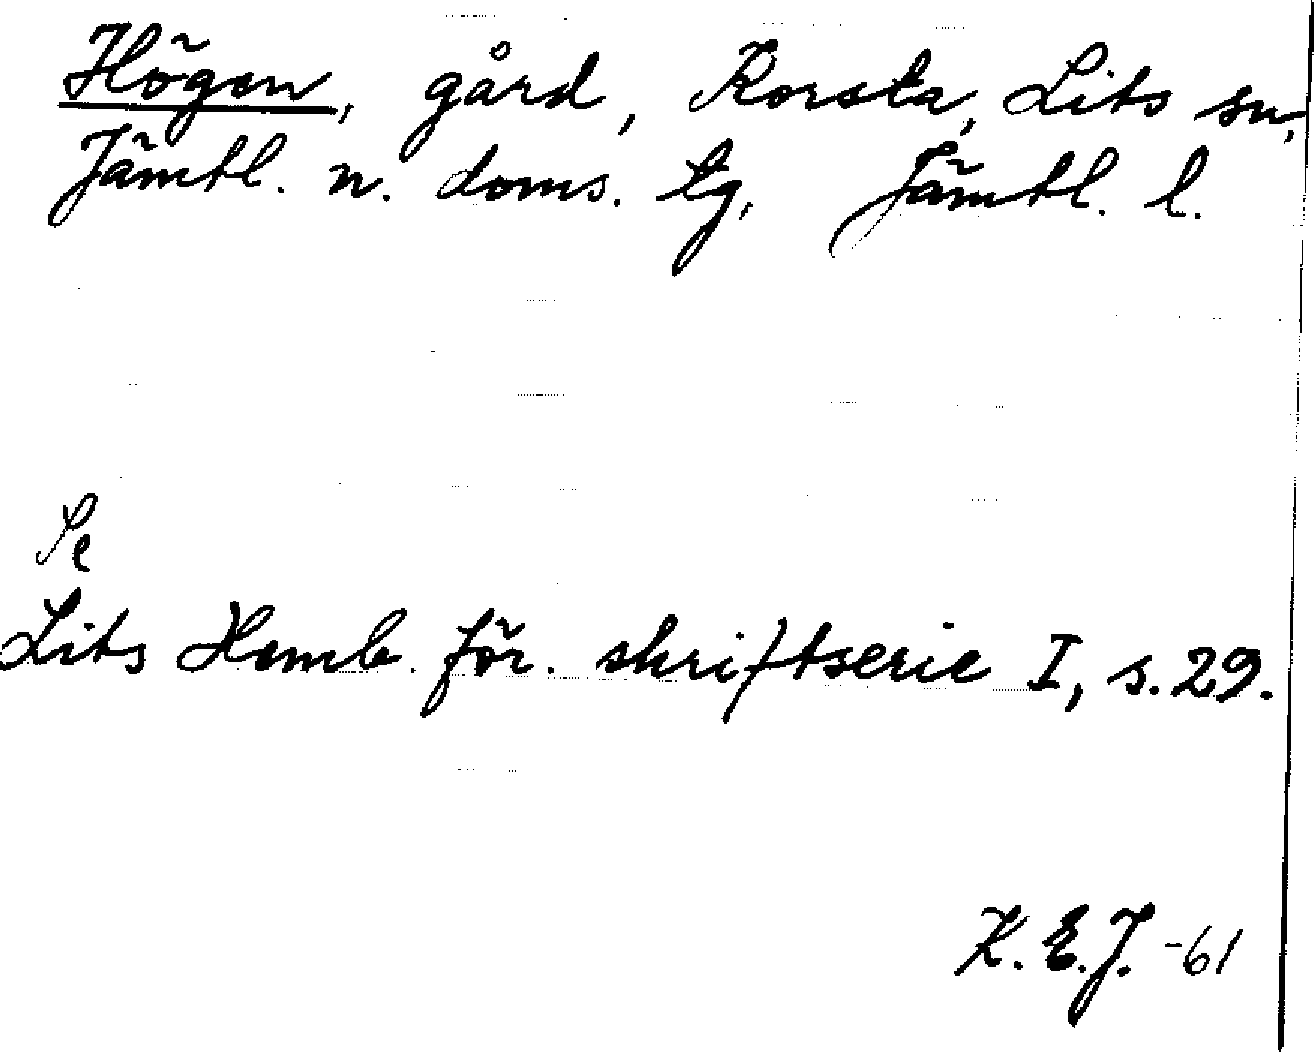 Högen, gård, Korsta, Lits sn,
Jämtl. n. doms. tg, Jämtl. l.
Se
Lits Hemb. för. skriftserie I, s. 29.
K. E. J. -61